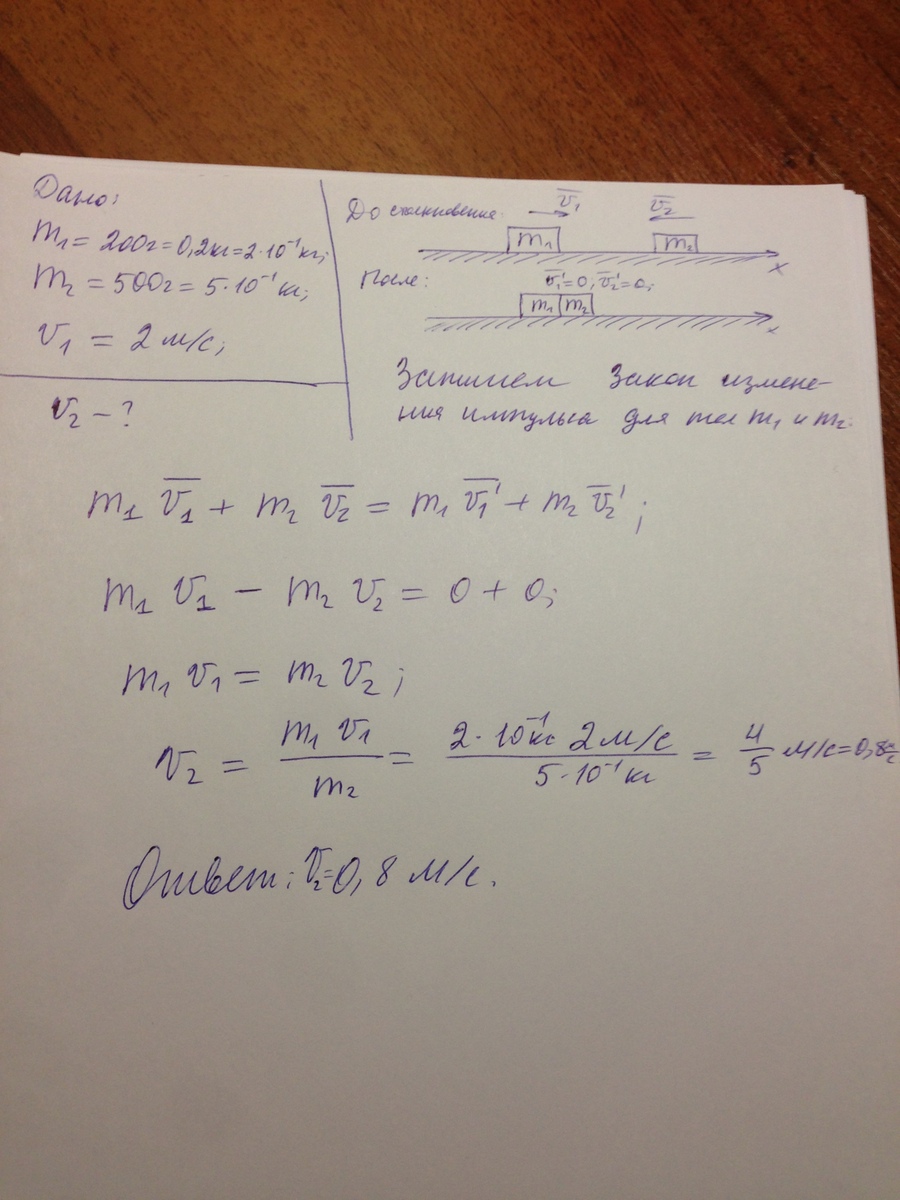 Дано:
m₁ = 200г = 0,2кг = 2·10⁻¹ кг;
m₂ = 500г = 5·10⁻¹ кг;
v₁ = 2 м/с;
v₂ – ?
До столкновение:
v̅₁ v̅₂
m₁ m₂
x
После:
v̅₁' = 0; v̅₂' = 0;
m₁ m₂
x
Запишем Закон измене-
ния импульса для тел m₁ и m₂:
m₁ v̅₁ + m₂ v̅₂ = m₁ v̅₁' + m₂ v̅₂' ;
m₁ v₁ – m₂ v₂ = 0 + 0;
m₁ v₁ = m₂ v₂ ;
v₂ = m₁ v₁ / m₂ = 2·10⁻¹кг 2м/с / 5·10⁻¹ кг = 4/5 м/с = 0,8 м/с
Ответ: v₂=0,8 м/с.